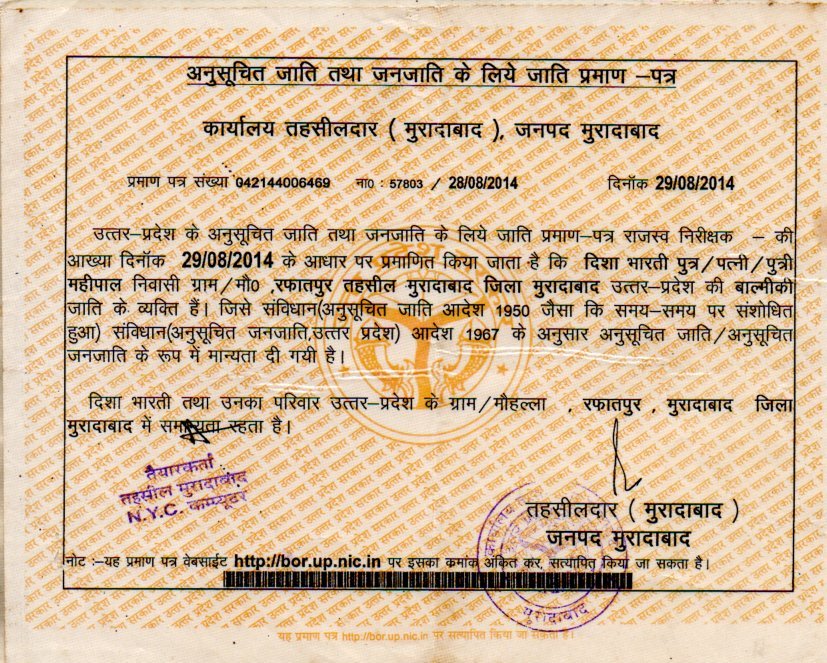 अनुसूचित जाति तथा जनजाति के लिये जाति प्रमाण –पत्र
कार्यालय तहसीलदार ( मुरादाबाद ), जनपद मुरादाबाद
प्रमाण पत्र संख्या 042144006469 ना0 : 57803 / 28/08/2014 दिनॉक 29/08/2014
उत्तर–प्रदेश के अनुसूचित जाति तथा जनजाति के लिये जाति प्रमाण–पत्र राजस्व निरीक्षक – की
आख्या दिनॉक 29/08/2014 के आधार पर प्रमाणित किया जाता है कि दिशा भारती पुत्र/पत्नी/पुत्री
महीपाल निवासी ग्राम/मौ0 ,रफातपुर तहसील मुरादाबाद जिला मुरादाबाद उत्तर–प्रदेश की बाल्मीकी
जाति के व्यक्ति हैं। जिसे संविधान(अनुसूचित जाति आदेश 1950 जैसा कि समय–समय पर संशोधित
हुआ) संविधान(अनुसूचित जनजाति,उत्तर प्रदेश) आदेश 1967 के अनुसार अनुसूचित जाति/अनुसूचित
जनजाति के रूप में मान्यता दी गयी है।
दिशा भारती तथा उनका परिवार उत्तर–प्रदेश के ग्राम/मौहल्ला , रफातपुर , मुरादाबाद जिला
मुरादाबाद में समान्यता रहता है।
तैयारकर्ता
तहसील मुरादाबाद
N.Y.C. कम्प्यूटर
तहसीलदार ( मुरादाबाद )
जनपद मुरादाबाद
नोट :–यह प्रमाण पत्र वेबसाईट http://bor.up.nic.in पर इसका कमांक अंकित कर, सत्यापित किया जा सकता है।
मुरादाबाद
यह प्रमाण पत्र http://bor.up.nic.in पर सत्यापित किया जा सकता है।